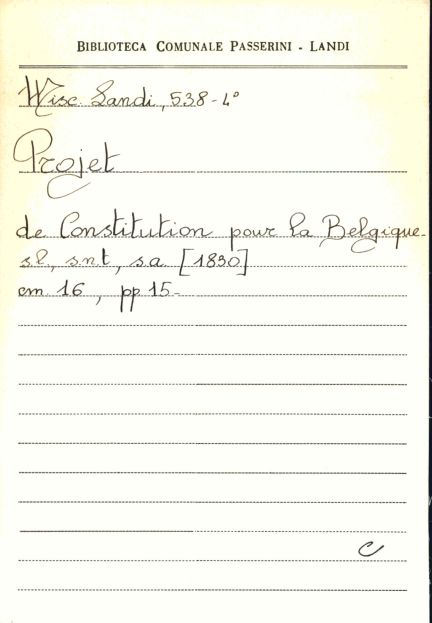 BIBLIOTECA COMUNALE PASSERINI - LANDI
Misc. Landi, 538-4°
Projet
de Constitution pour la Belgique.
s.l., s.n.t, s.a. [1830]
cm. 16, pp 15-
C